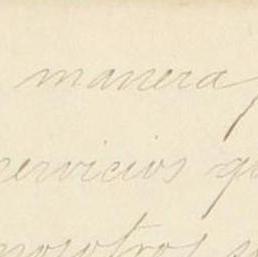 manera
servicios
nosotros